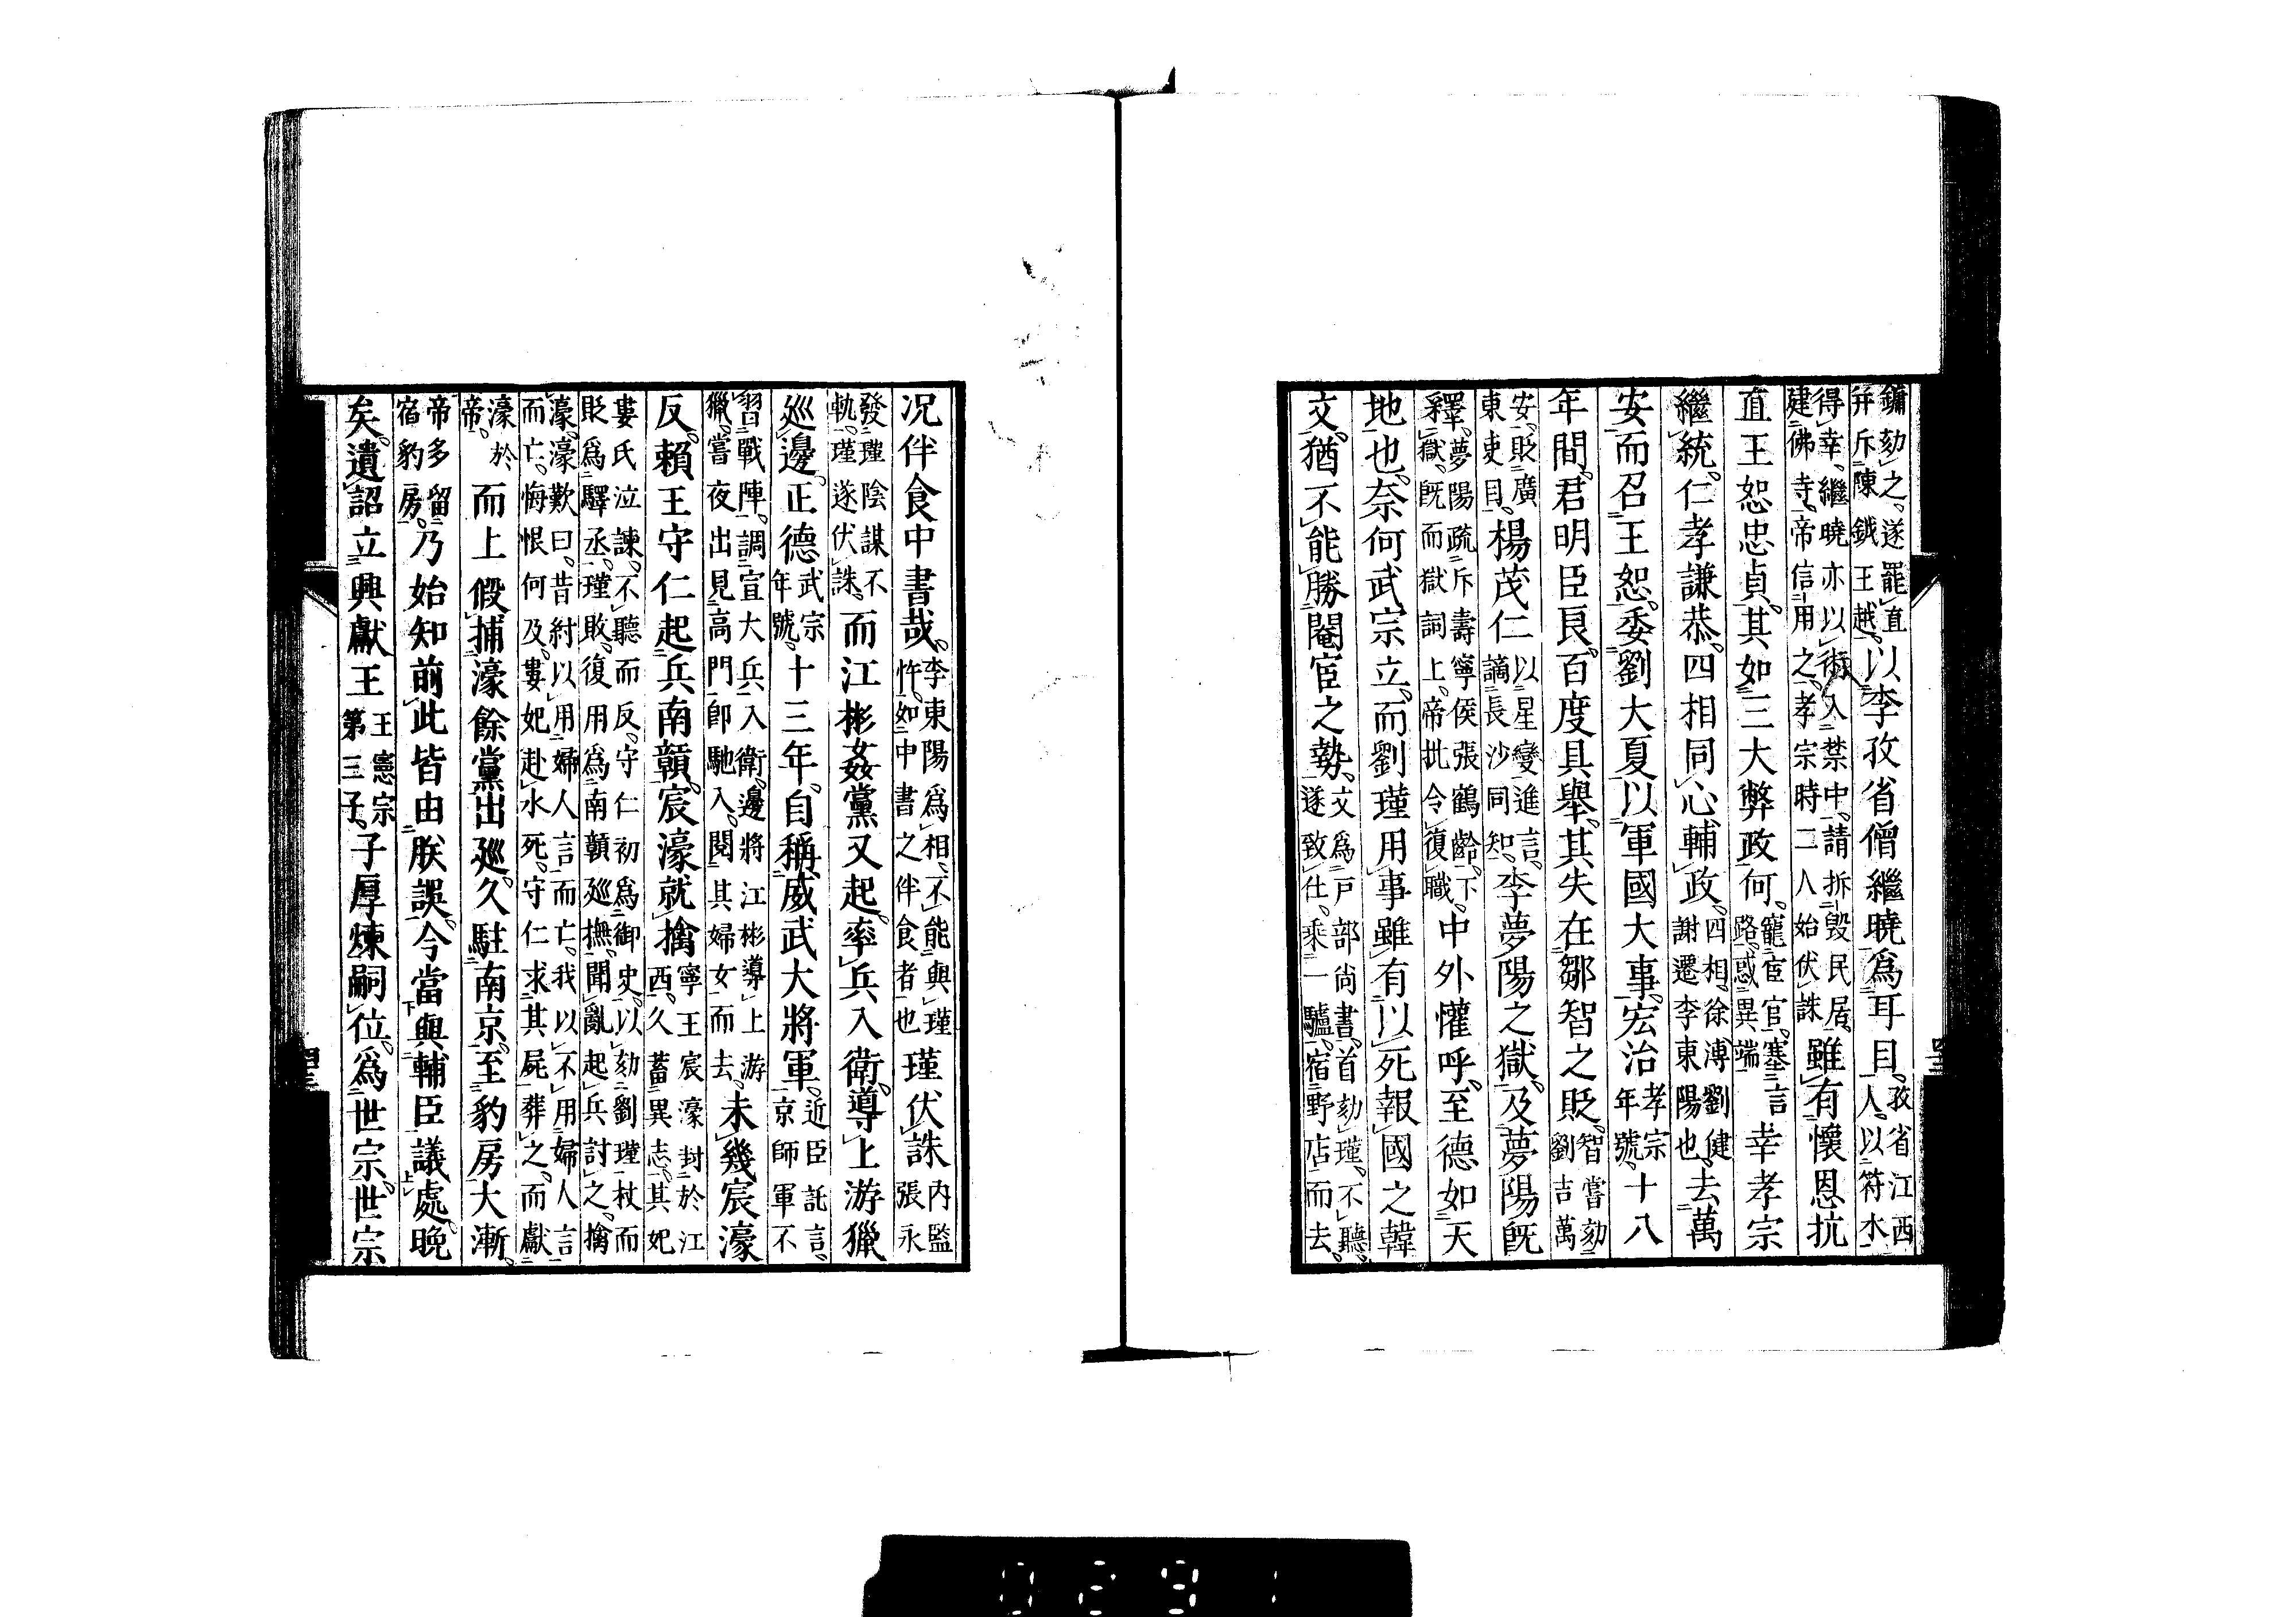 鏞劾之。遂罷直
并斥陳鉞王越。以李孜省僧繼曉爲耳目。孜省江西
人。以符水
得幸。繼曉亦以術入禁中。請拆毀民居。
建佛寺。帝信用之。孝宗時二人始伏誅雖有懷恩抗
直王恕忠貞。其如三大弊政何。寵宦官。塞言
路。惑異端幸孝宗
繼統。仁孝謙恭。四相同心輔政。四相。徐溥劉健
謝遷李東陽也。去萬
安而召王恕。委劉大夏以軍國大事。宏治孝宗
年號。十八
年間。君明臣良。百度具舉。其失在鄒智之貶。智嘗劾
劉吉萬
安。貶廣
東吏目。楊茂仁以星變進言。
謫長沙同知。李夢陽之獄。及夢陽既
釋。夢陽疏斥壽寧侯張鶴齡。下
獄。既而獄詞上。帝批令復職。中外懽呼。至德如天
地也。奈何武宗立。而劉瑾用事雖有以死報國之韓
文。猶不能勝閹宦之勢。文爲戶部尚書。首劾瑾。不聽。
遂致仕。乘一驢。宿野店而去。
况伴食中書哉。李東陽爲相。不能與瑾
忤。如中書之伴食者也瑾伏誅內監
張永
發瑾陰謀不
軌。瑾遂伏誅。而江彬姦黨又起。率兵入衛。導上游獵
巡邊。正德武宗
年號。十三年。自稱威武大將軍。近臣託言。
京師軍不
習戰陣。調宣大兵入衛。邊將江彬導上游
獵。嘗夜出見高門卽馳入。閱其婦女而去。未幾宸濠
反。賴王守仁起兵南贛。宸濠就擒寧王宸濠封於江
西。久蓄異志。其妃
婁氏泣諫。不聽而反。守仁初爲御史。以劾劉瑾杖而
貶爲驛丞。瑾敗。復用爲南贛巡撫。聞亂起兵討之。擒
濠。濠歎曰。昔紂以用婦人言而亡。我以不用婦人言
而亡。悔恨何及。婁妃赴水死。守仁求其屍葬之。而獻
濠於
帝。而上假捕濠餘黨出巡。久駐南京。至豹房大漸。
帝多留
宿豹房。乃始知前此皆由朕誤。今當與輔臣議處。晚
矣。遺詔立興獻王王憲宗
第三子。子厚熜嗣位。爲世宗。世宗
0291